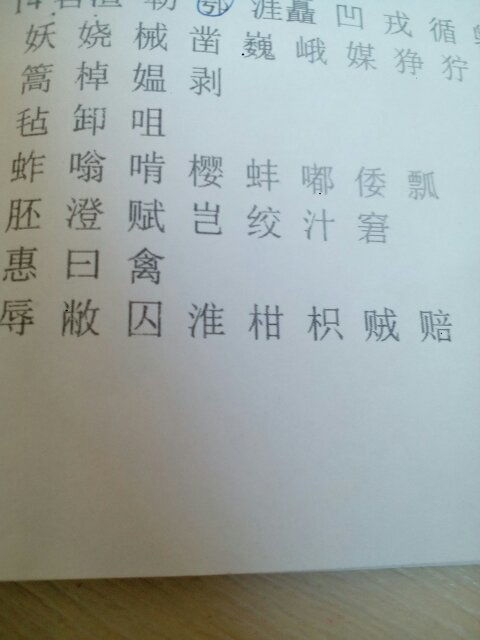 鄂 涯 矗 凹 戎 循
妖 娆 械 凿 巍 峨 媒 狰 狞
篙 棹 媪 剥
毡 卸 咀
蚱 嗡 啃 樱 蚌 嘟 倭 瓢
胚 澄 赋 岂 绞 汁 窘
惠 曰 禽
辱 敝 囚 淮 柑 枳 贼 赔